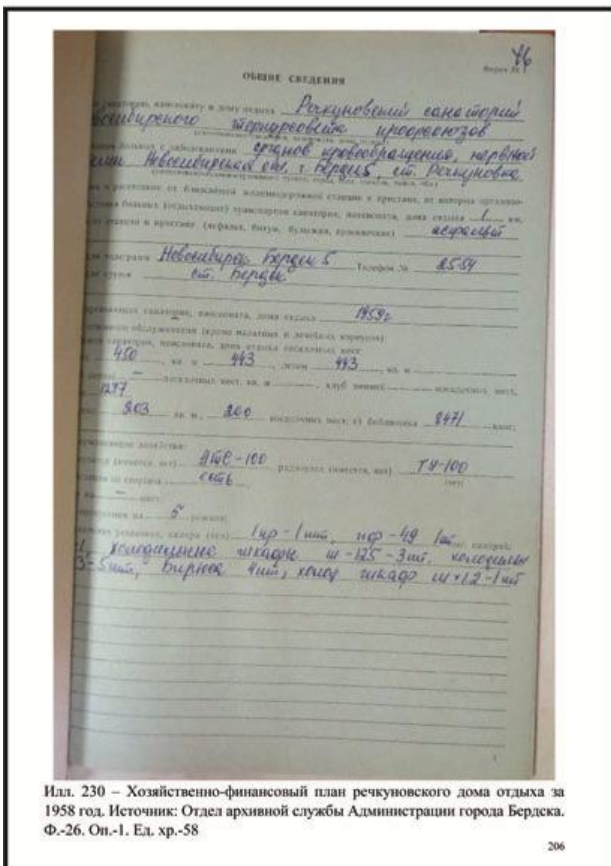 46
Форма № 1
ОБЩИЕ СВЕДЕНИЯ
санаторию, пансионату и дому отдыха Речкуновский санаторий
Новосибирского терсовета профсоюзов
больных с заболеваниями органов кровообращения, нервной
Новосибирская обл. г. Бердск 5, ст. Речкуновка
и расстояние от ближайшей железнодорожной станции и пристани, от которой
больных (отдыхающих) транспортом санатория, пансионата, дома отдыха 1 км,
станции и пристани (асфальт, битум, булыжник, проселочная) асфальт
для телеграмм Новосибирск Бердск 5 Телефон № 25-54
для грузов ст. Бердск
санатория, пансионата, дома отдыха 1959г
обслуживания (кроме палатных и лечебных корпусов)
санатория, пансионата, дома отдыха посадочных мест
450 кв. м 443, летом 443, кв. м
посадочных мест, кв. м клуб зимний посадочных мест,
1297
203 кв. м, 200 посадочных мест, г) библиотека 8471 книг;
хозяйства:
АТС-100 радиоузел (имеется, нет) ТУ-100
есть
мест
5
1шт
холодильные шкафы ш-125-3шт, холодильн
3-5шт, Бирюса 4шт, холод шкаф
Илл. 230 – Хозяйственно-финансовый план речкуновского дома отдыха за
1958 год. Источник: Отдел архивной службы Администрации города Бердска.
Ф.-26. Оп.-1. Ед. хр.-58
206